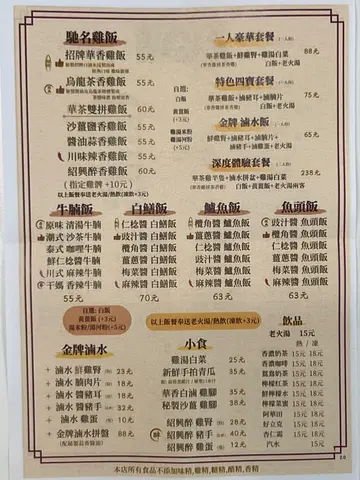 馳名雞飯
招牌華香雞飯 55元
烏龍茶香雞飯 55元
華茶雙拼雞飯 60元
沙薑鹽香雞飯 55元
醬油蒜香雞飯 55元
川味辣香雞飯 55元
紹興醉香雞飯 60元
(指定雞髀+10元)
自選:
白飯
黃薑飯
(+3元)
雞湯米粉
/湯河粉
(+5元)
以上雞飯套餐奉送老火湯/熱飲(凍飲+3元)
一人豪華套餐 (一人份)
華茶雞飯+鮮雞腎+雞湯白菜 88元
白飯+老火湯
特色四寶套餐 (一人份)
華茶雞飯+滷豬耳+滷腩片 75元
白飯+老火湯
金牌 滷水飯 (一人份)
鮮雞腎+滷豬耳+滷腩片 65元
滷豬手+滷雞蛋+老火湯
深度體驗套餐 (二人份)
華茶雞半隻+滷水拼盆+雞湯白菜 238元
白飯+黃薑飯+老火湯兩客
牛腩飯
原味 清湯牛腩
潮式 沙茶牛腩
泰式 咖喱牛腩
鮮仁稔醬牛腩
川式 麻辣牛腩
干媽 香辣牛腩
55元
白鱔飯
仁稔醬 白鱔飯
豉汁醬 白鱔飯
欖角醬 白鱔飯
薑蔥醬 白鱔飯
梅菜醬 白鱔飯
麻辣醬 白鱔飯
70元
鱸魚飯
欖角醬 鱸魚飯
豉汁醬 鱸魚飯
薑蔥醬 鱸魚飯
梅菜醬 鱸魚飯
仁稔醬 鱸魚飯
麻辣醬 鱸魚飯
63元
魚頭飯
豉汁醬 魚頭飯
欖角醬 魚頭飯
仁稔醬 魚頭飯
薑蔥醬 魚頭飯
梅菜醬 魚頭飯
麻辣醬 魚頭飯
63元
自選:白飯
黃薑飯(+3元)
湯米粉/湯河粉(+5元)
以上飯套餐奉送老火湯/熱飲(凍飲+3元)
金牌滷水
+ 滷水 鮮雞腎 (例) 23元
+ 滷水 腩肉片 (例) 18元
+ 滷水 醬豬耳 (例) 18元
+ 滷水 醬豬手 (例) 32元
+ 滷水 雞蛋 (例) 10元
+ 金牌滷水拼盤 (例) 88元
小食
雞湯白菜 25元
新鮮手拍青瓜 35元
華香白滷 雞腳 35元
秘製沙薑 雞腳 38元
紹興醉 雞腎 (例) 28元
紹興醉 豬手 (例) 40元
紹興醉 雞蛋 (例) 12元
飲品
老火湯 15元
熱 / 凍
香濃奶茶 15元 18元
香濃咖啡 15元 18元
鴛鴦奶茶 15元 18元
檸檬紅茶 15元 18元
鮮檸檬水 15元 18元
檸檬菜蜜 15元 18元
阿華田 15元 18元
好立克 15元 18元
杏仁霜 15元 18元
汽水 15元
本店所有食品不添加味精,雞精,糖精,醋精,香精